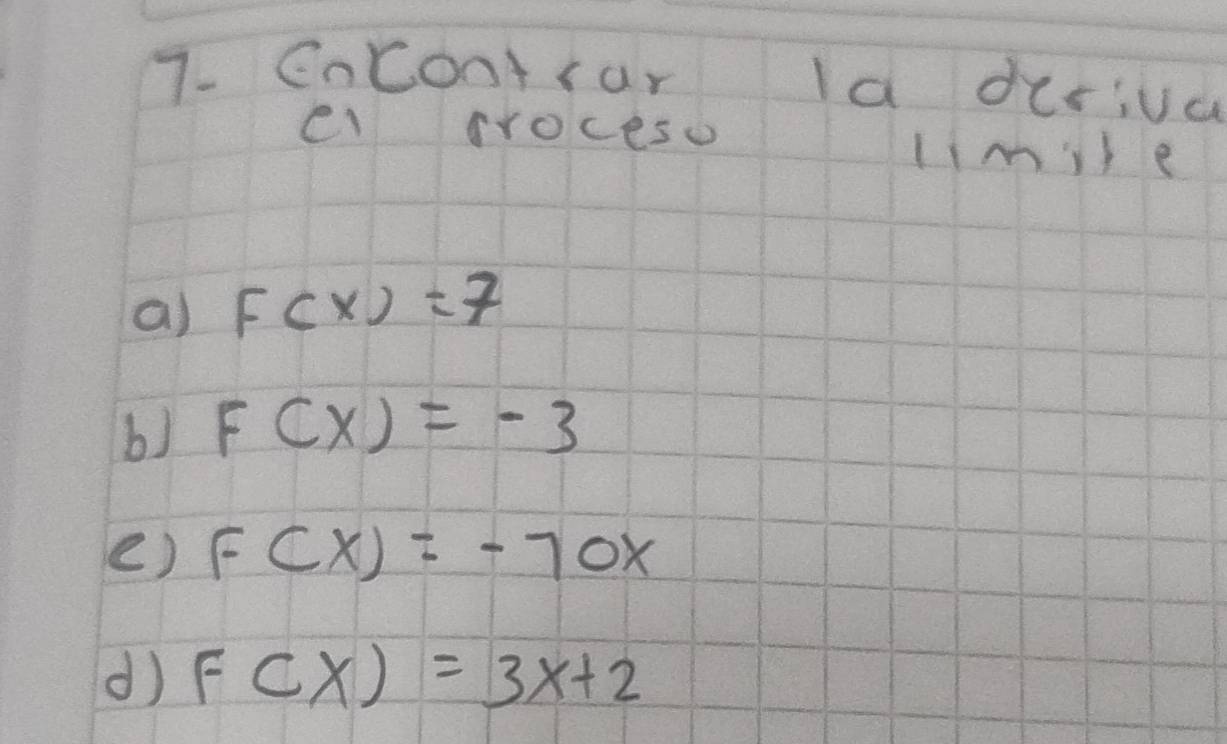 1- Encontrar la deriva
el proceso limite
a) F(x) = 7
b) F(x) = -3
c) F(x) = -10x
d) F(x) = 3x+2